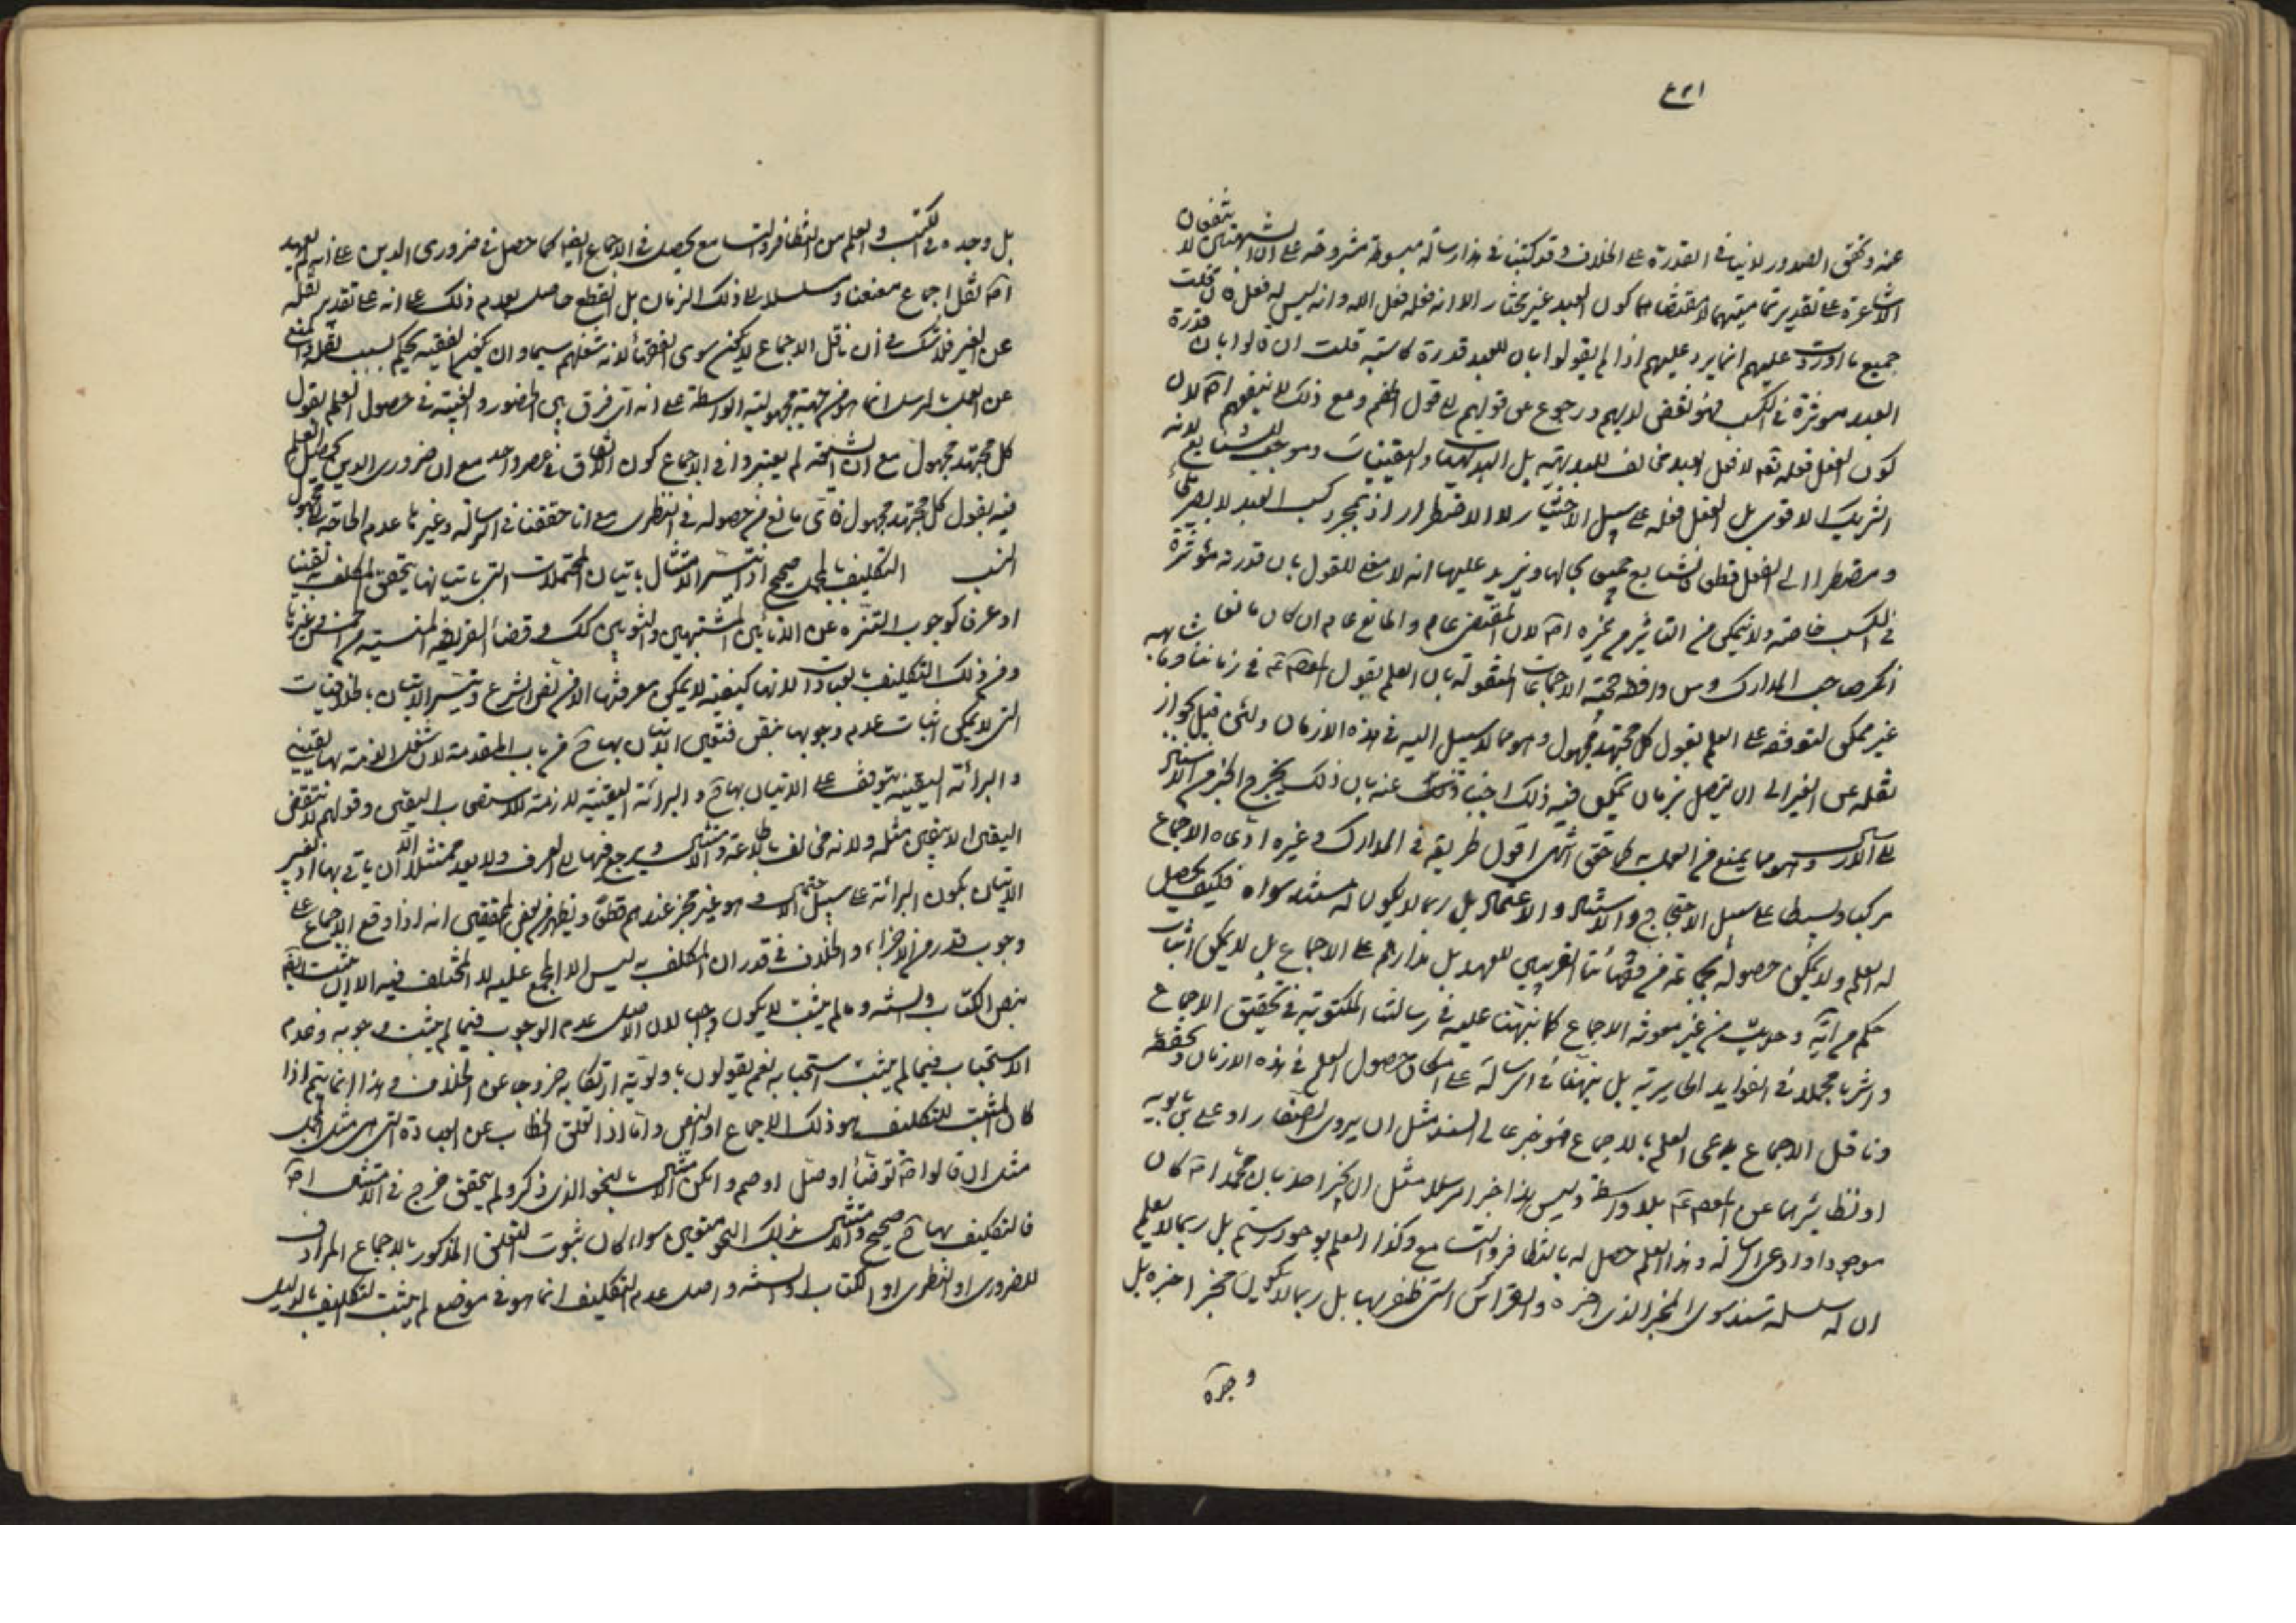 عنه وتحقق الصدور لا ينافي القدرة على الخلاف وقد كتبنا في هذا رسالة مبسوطة مشروحة على ان الشبهتين لا يتفعان
الاشاعرة على تقدير تماميتهما لاقتضائهما كون العبد غير مختار الا انه فعله فعل الله وانه ليس له فعل فان قلت
جميع ما اوردت عليهم انما يرد عليهم اذا لم يقولوا بان للعبد قدرة كاسبة قلت ان قالوا بان قدرة
العبد موثرة في الكسب فهو نقض لدليهم ورجوع عن قولهم الى قول الخصم ومع ذلك لا ينفعهم اصلا لان
كون الفعل فعله تعالى لا فعل العبد مخالف للبديهية بل البديهيات واليقينيات وموجب للشنايع لانه
الشريك الاقوى بل الفعل فعله على سبيل الاختيار لا الاضطرار اذ بمجرد كسب العبد لا يصير ملجأ
ومضطرا الى الفعل قطعا فالشنايع جميعا بحالها ويزيد عليها انه لا معنى للقول بان قدرته مؤثرة
في الكسب خاصة ولا يتمكن من التاثير في غيره اصلا لان المقتضي عام والمانع عام ان كان مانعا
انكر صاحب المدارك ومن وافقه حجية الاجماعات المنقولة بان العلم بقول المعصوم ع في زماننا وما شابهه
غير ممكن لتوقفه على العلم بقول كل مجتهد مجهول وهو مما لا سبيل اليه في هذه الازمان ولئن قيل بجواز
نقله عن الغير الى ان يتصل بزمان يمكن فيه ذلك اجبنا عنه بان ذلك يخرج الخبر من الاسناد
الى الارسال وهو مما يمنع من العمل به كما حقق انتهى اقول طريقه في المدارك وغيره ادعاه الاجماع
مركبا وبسيطا على سبيل الاحتجاج والاستناد والاعتماد بل ربما لا يكون له مستند سواه فكيف يحصل
له العلم ولا يمكن حصوله لجماعة من فقهائنا القريبين للعهد بل مدارهم على الاجماع بل لا يمكن اثبات
حكم من آية وحديث من غير معونة الاجماع كما نبهنا عليه في رسالتنا المكتوبة في تحقيق الاجماع
واشرنا مجملا في الفوايد الحايرية بل نبهنا في الرسالة على امكان حصول العلم في هذه الازمان وتحققه
وناقل الاجماع يدعي العلم بالاجماع فهو خبر عالي السند مثل ان يروي الصفار او علي بن بابويه
او نظائرهما عن المعصوم ع بلا واسطة وليس هذا خبرا مرسلا مثل ان يخبر احد بان محمدا ص كان
موجودا وادعى الرسالة وهذا العلم حصل له بالتظافر والتسامع وكذا العلم بوجود رستم بل ربما لا يعلم
ان له سلسلة سند سوى المخبر الذي اخبره والقرائن التي ظفر بها بل ربما لا يكون مخبر اخبره بل
وجده
بل وجده في الكتب والعلم من التظافر والتسامع يحصل في الاجماع ايضا كما حصل في ضروري الدين على انه لم يعهد
اصلا نقل اجماع معنعنا ومسلسلا الى ذلك الزمان بل القطع حاصل بعدم ذلك على انه على تقدير نقله
عن الغير فلا شك في ان ناقل الاجماع لا يمكن سوى الفقهاء لانه شغلهم سيما وان يخبر الفقيه بحكم بسبب نقله والمنع
عن العمل بالمرسل انما هو من جهة مجهولية الواسطة على انه اي فرق بين الحضور والغيبة في حصول العلم بقول
كل مجتهد مجهول مع ان الشيعة لم يعتبروا في الاجماع كون الاتفاق في عصر واحد مع ان ضروري الدين يحصل العلم
فيه بقول كل مجتهد مجهول فاي مانع من حصوله في النظري مع انا حققنا في الرسالة وغيرها عدم الحاجة الى مجهول
النسب التكليف بالمجمل صحيح اذا تيسر الامتثال باتيان المحتملات التي باتيانها يتحقق المكلف به يقينا
او عرفا كوجوب التنزه عن الانائين المشتبهين والثوبين كذلك وقضاء الفريضة المنسية من الخمس وغيرها
ومن ذلك التكليف بالعبادات لانها كيفية لا يمكن معرفتها الا من نص الشرع وتيسر الاتيان بالخلافيات
التي لا يمكن اثبات عدم وجوبها بنص فتعين الاتيان بها من باب المقدمة لان شغل الذمة بها يقيني
والبرائة اليقينية يتوقف على الاتيان بها والبرائة اليقينية لازمة للاستصحاب اليقين وقولهم لا ينتقض
اليقين الا بيقين مثله ولانه مخالف الاطاعة والامتثال ويرجع فيها الى العرف ولا يعد ممتثلا الا ان ياتي بها او يفسر
الاتيان بكون البرائة على سبيل الاحتمال وهو غير مجز عندهم قطعا ويظهر من بعض المحققين انه اذا وقع الاجماع على
وجوب قدر من الاجزاء والخلاف في قدر ان المكلف به ليس الا المجمع عليه لا المختلف فيه الا ان يثبت ايضا
بنص الكتاب والسنة وما لم يثبت لا يكون واجبا لان الاصل عدم الوجوب فيما لم يثبت وجوبه وعدم
الاستحباب فيما لم يثبت استحبابه نعم يقولون باولوية ارتكابه خروجا عن الخلاف وهذا انما يتم اذا
كان المثبت للتكليف هو ذلك الاجماع او النص واما اذا تعلق الخطاب عن العبادة التي هي مثل المجمل
مثل ان قالوا توضأ او صل او صم وامكن الامتثال بالنحو الذي ذكر ولم يتحقق حرج في الامتثال اصلا
فالتكليف بها صحيح والامتثال بذلك النحو متعين سواء كان ثبوت التعلق المذكور بالاجماع المرادف
للضروري او النظري او الكتاب او السنة واصل عدم التكليف انما هو في موضع لم يثبت التكليف بالدليل